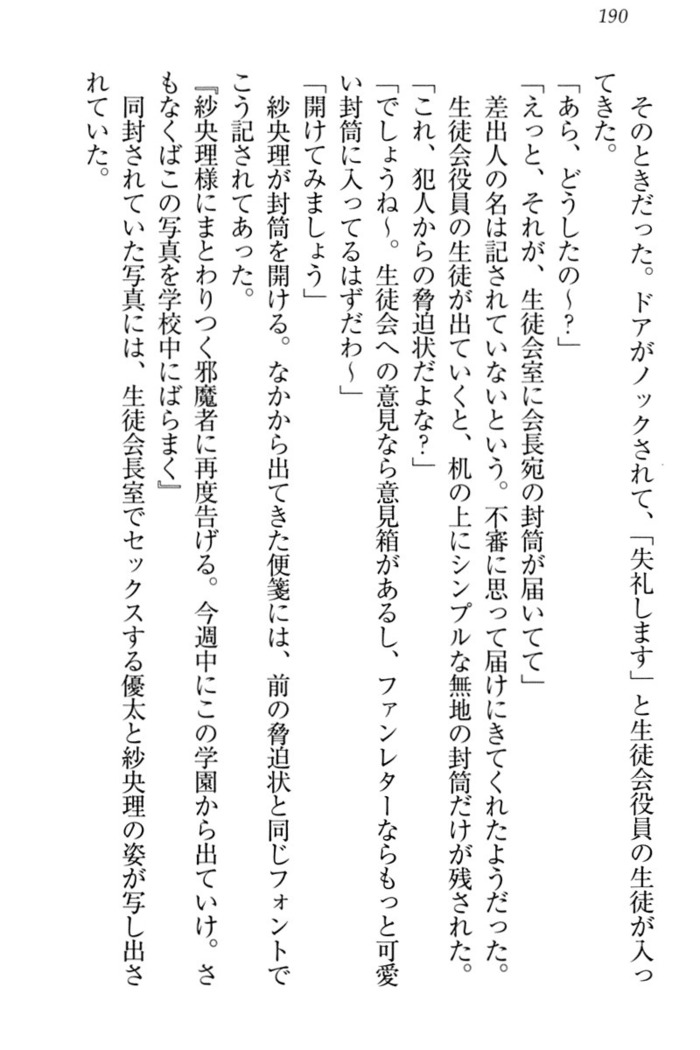 190
　そのときだった。ドアがノックされて、「失礼します」と生徒会役員の生徒が入っ
てきた。
「あら、どうしたの～？」
「えっと、それが、生徒会室に会長宛の封筒が届いてて」
　差出人の名は記されていないという。不審に思って届けにきてくれたようだった。
　生徒会役員の生徒が出ていくと、机の上にシンプルな無地の封筒だけが残された。
「これ、犯人からの脅迫状だよな？」
「でしょうね～。生徒会への意見なら意見箱があるし、ファンレターならもっと可愛
い封筒に入ってるはずだわ～」
「開けてみましょう」
　紗央理が封筒を開ける。なかから出てきた便箋には、前の脅迫状と同じフォントで
こう記されてあった。
『紗央理様にまとわりつく邪魔者に再度告げる。今週中にこの学園から出ていけ。さ
もなくばこの写真を学校中にばらまく』
　同封されていた写真には、生徒会長室でセックスする優太と紗央理の姿が写し出さ
れていた。